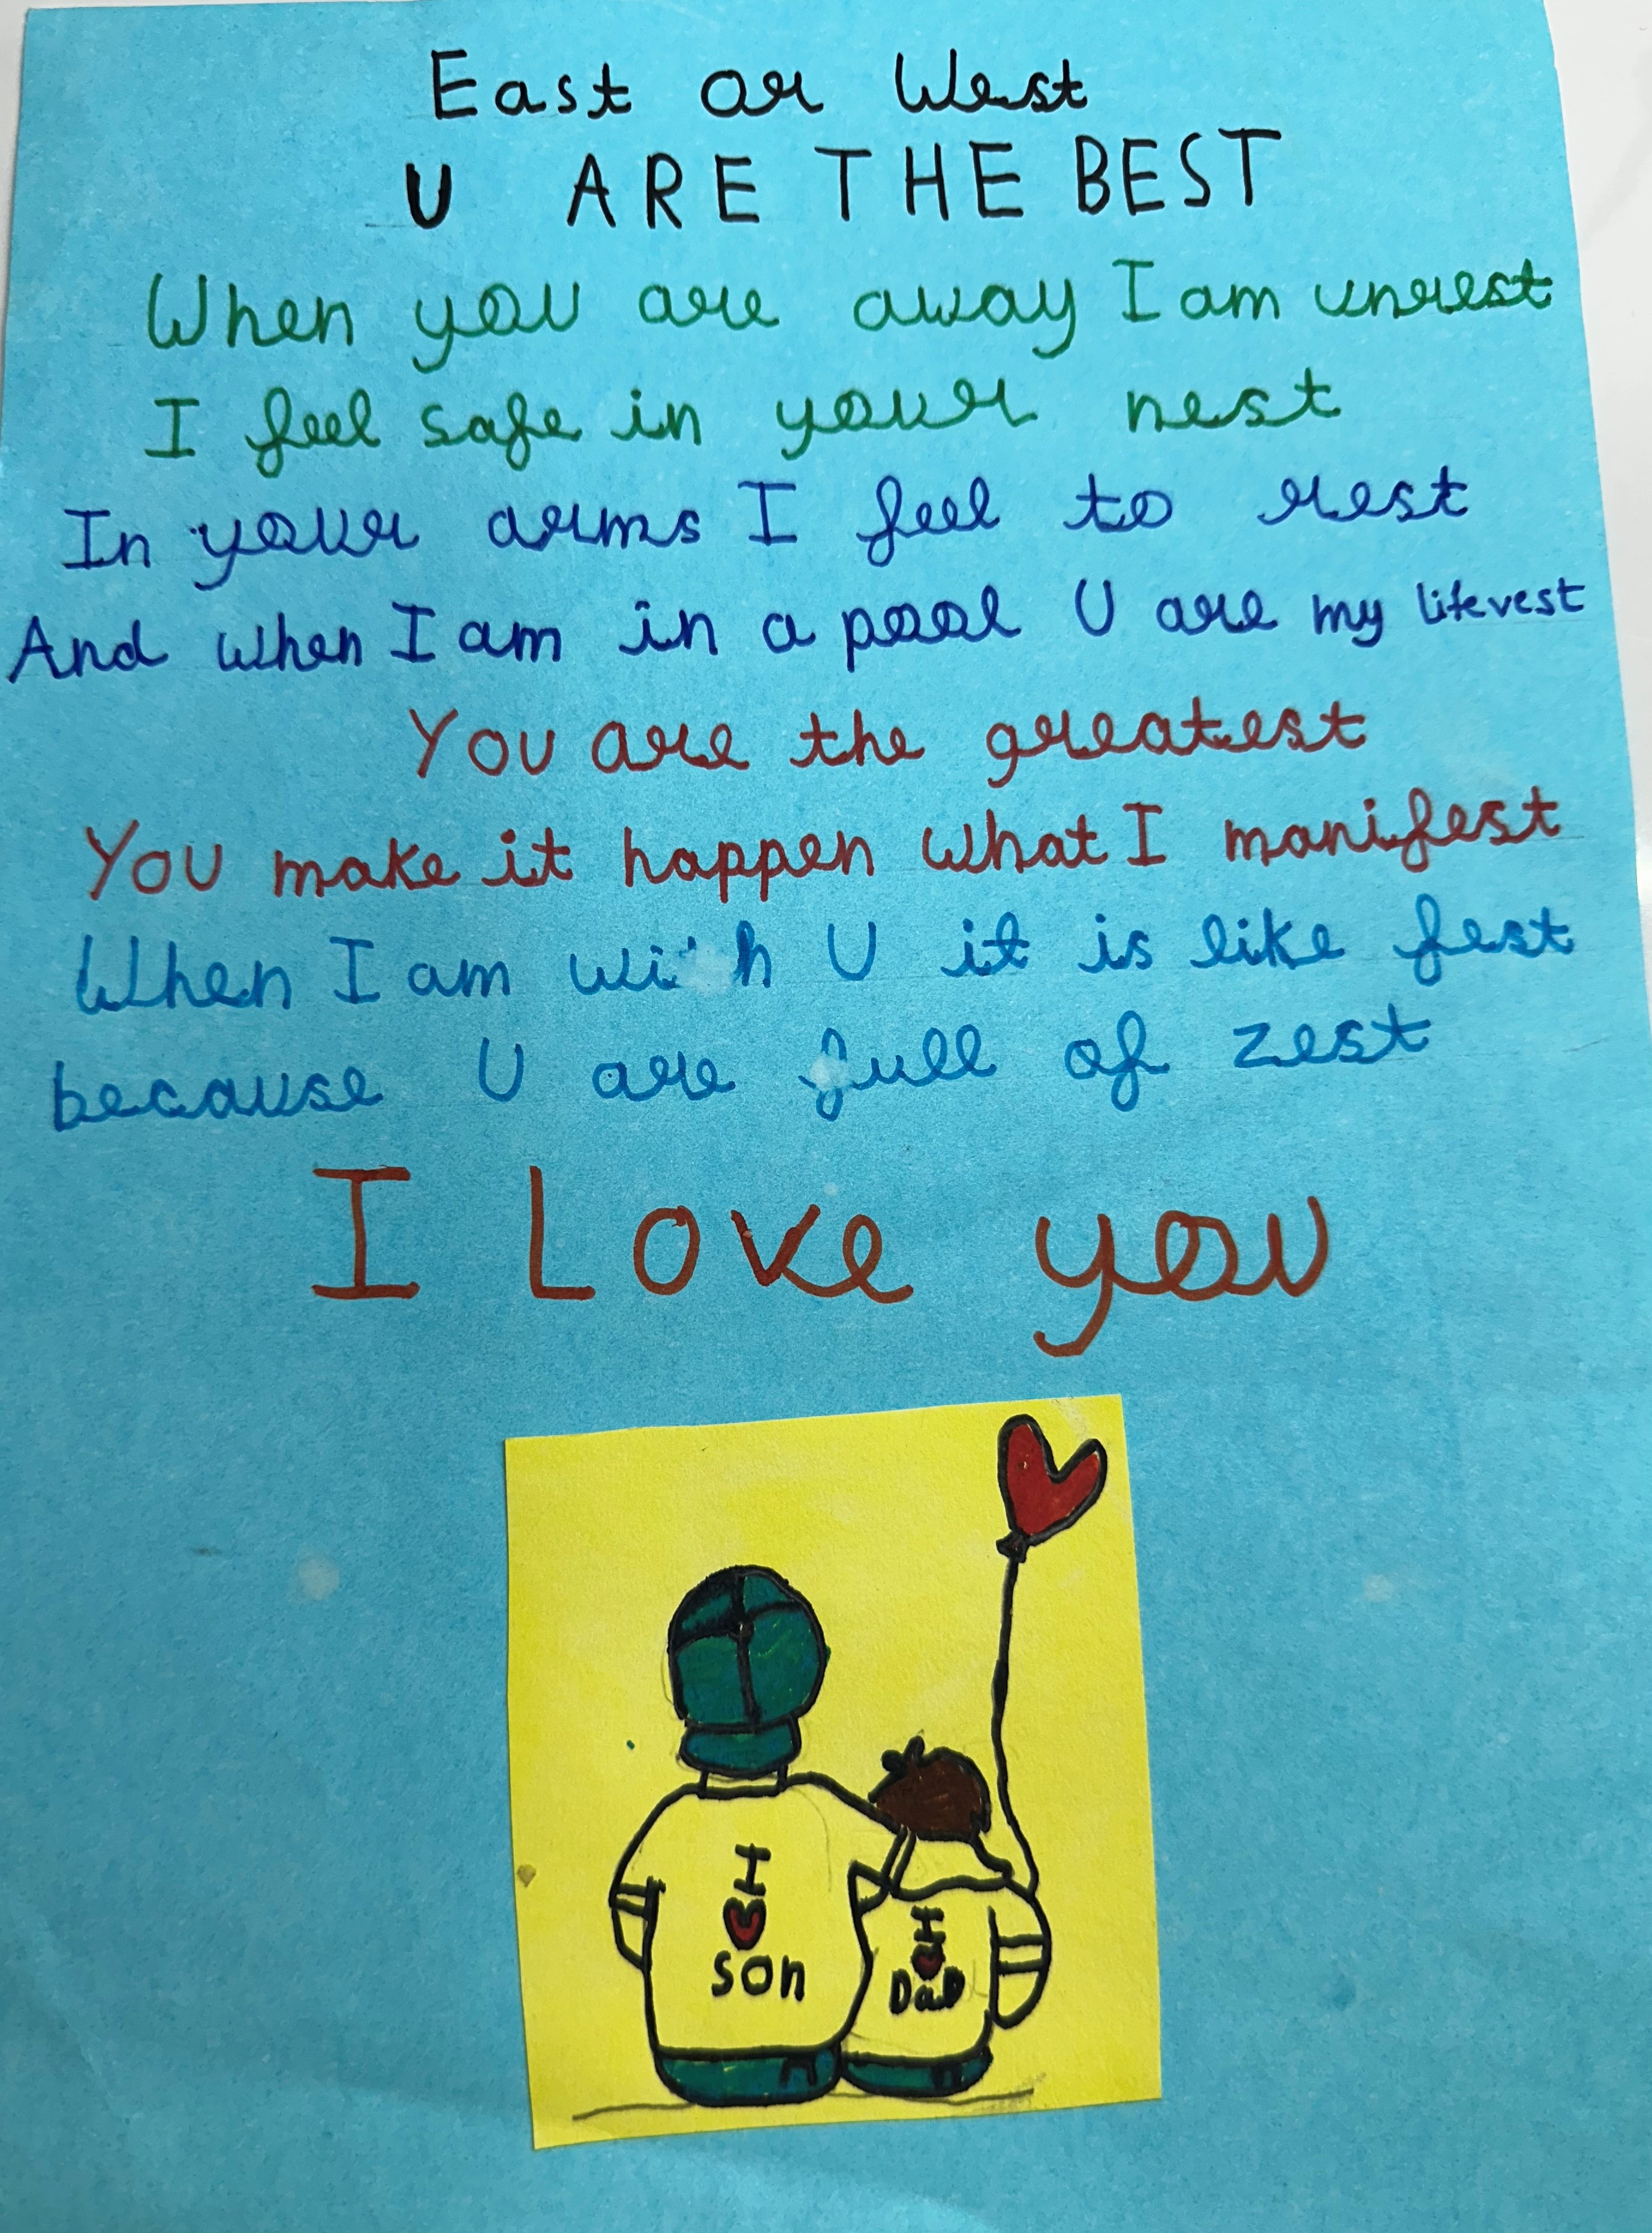 East or West
U ARE THE BEST
When you are away I am unrest
I feel safe in your nest
In your arms I feel to rest
And when I am in a pool U are my lifevest
You are the greatest
You make it happen what I manifest
When I am with U it is like fest
because U are full of zest
I Love you
I
son
I
DaD